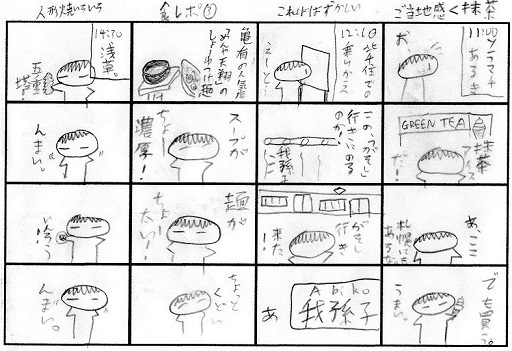 ご当地感く抹茶
11:00
ソラマチ
あるき
お、
GREEN TEA
抹茶
アイス
だ！
あ、ここ
札幌にも
あるな
でも買う。
うまい。
これははずかしい
12:10
北千住での
乗りかえ
えーと…
この「がそし」
行きにのる
のか！
我孫子
がそし
行き
来た！
Abiko
我孫子
あ
食レポ
亀有の人気店
しょーゆ麺
スープが
ちょー
濃厚！
麺が
ちょー
太い！
ちょっと
くどい
人形焼いろいろ
14:30
浅草。
五重
塔！
んまい。
んまい。